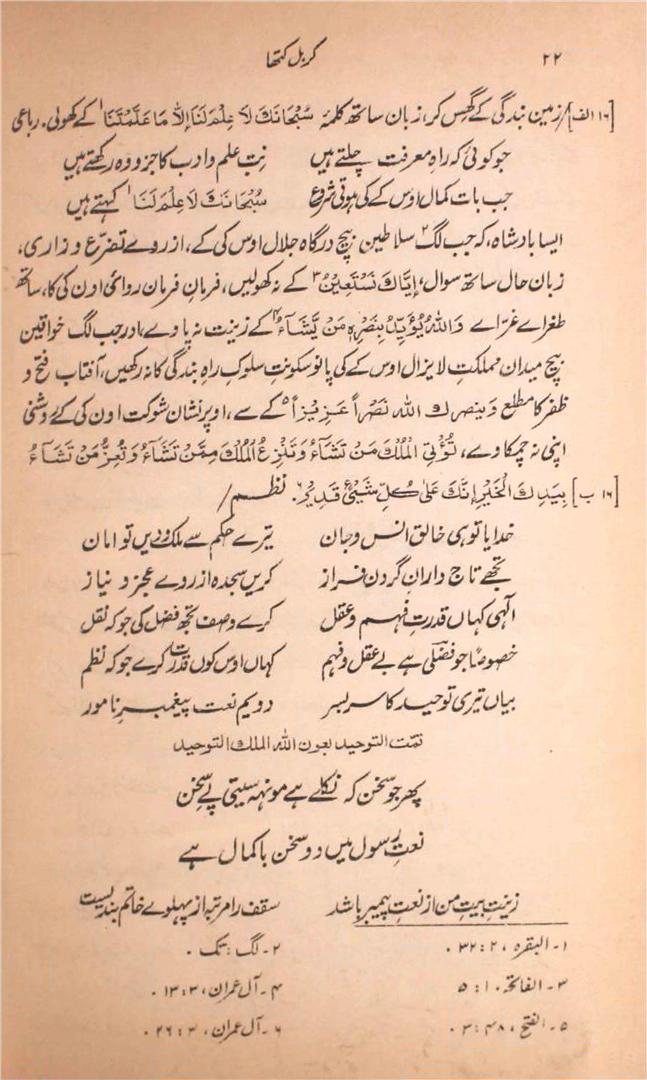 ۲۲ کربل کتھا
[۱۶ الف]/زمین بندگی کے گھس کر، زبان ساتھ کلمۂ سُبْحَانَكَ لَا عِلْمَ لَنَا إِلَّا مَا عَلَّمْتَنَا۱ کے کھولی۔ رباعی
جو کوئی کہ راہِ معرفت چلتے ہیں نِت علم و ادب کا جزو وہ رکھتے ہیں
جب بات کمال اوس کے کی ہوتی شروع سُبْحَانَكَ لَا عِلْمَ لَنَا۱ کہتے ہیں
ایسا بادشاہ، کہ جب لگ۲ سلاطین بیچ درگاہ جلال اوس کی کے، از روے تضرّع و زاری،
زبان حال ساتھ سوال، إِيَّاكَ نَسْتَعِيْنُ۳ کے نہ کھولیں، فرمانِ فرمان روائی اون کی کا، ساتھ
طغراے غرّاے وَاللهُ يُؤَيِّدُ بِنَصْرِهٖ مَن يَّشَآءُ۴ کے زینت نہ پاوے، اور جب لگ خواقین
بیچ میدان مملکتِ لا یزال اوس کے کی پانو سکونتِ سلوکِ راہِ بندگی کا نہ رکھیں، آفتاب فتح و
ظفر کا مطلع وَيَنْصُرَكَ اللهُ نَصْراً عَزِيْزاً۵ کے سے، اوپر نشان شوکت اون کی کے روشنی
اپنی نہ چمکاوے، تُؤْتِي الْمُلْكَ مَنْ تَشَآءُ وَتَنْزِعُ الْمُلْكَ مِمَّنْ تَشَآءُ وَتُعِزُّ مَنْ تَشَآءُ
[۱۶ ب] بِيَدِكَ الْخَيْرُ إِنَّكَ عَلٰى كُلِّ شَيْئٍ قَدِيْرٌ۶۔ نظم/
خدایا توہی خالق انس و جان تیرے حکم سے ملک و دیں تو امان
تجھے تاج دارانِ گردن فراز کریں سجدہ از روے عجز و نیاز
الٰہی کہاں قدرتِ فہم و عقل کرے وصف تجھ فضل کی جو کہ نقل
خصوصاً جو فضلی ہے بے عقل و فہم کہاں اوس کوں قدرت کرے جو کہ نظم
بیاں تیری توحید کا سر بسر دویم نعت پیغمبرِ نامور
تمّت التوحيد بعون الله الملك التوحيد
پھر جو سخن کہ نکلے ہے مونہہ سیتی پے سخن
نعتِ رسول میں دو سخن با کمال ہے
زینتِ بیتِ من از نعتِ پیمبر باشد سقف را مرتبہ از پہلوے خاتم بندیست
۱۔ البقرہ، ۲ : ۳۲۔ ۲۔ لگ : تک۔
۳۔ الفاتحہ، ۱ : ۵ ۴۔ آل عمران، ۳ : ۱۳۔
۵۔ الفتح، ۴۸ : ۳۔ ۶۔ آل عمران، ۳ : ۲۶۔